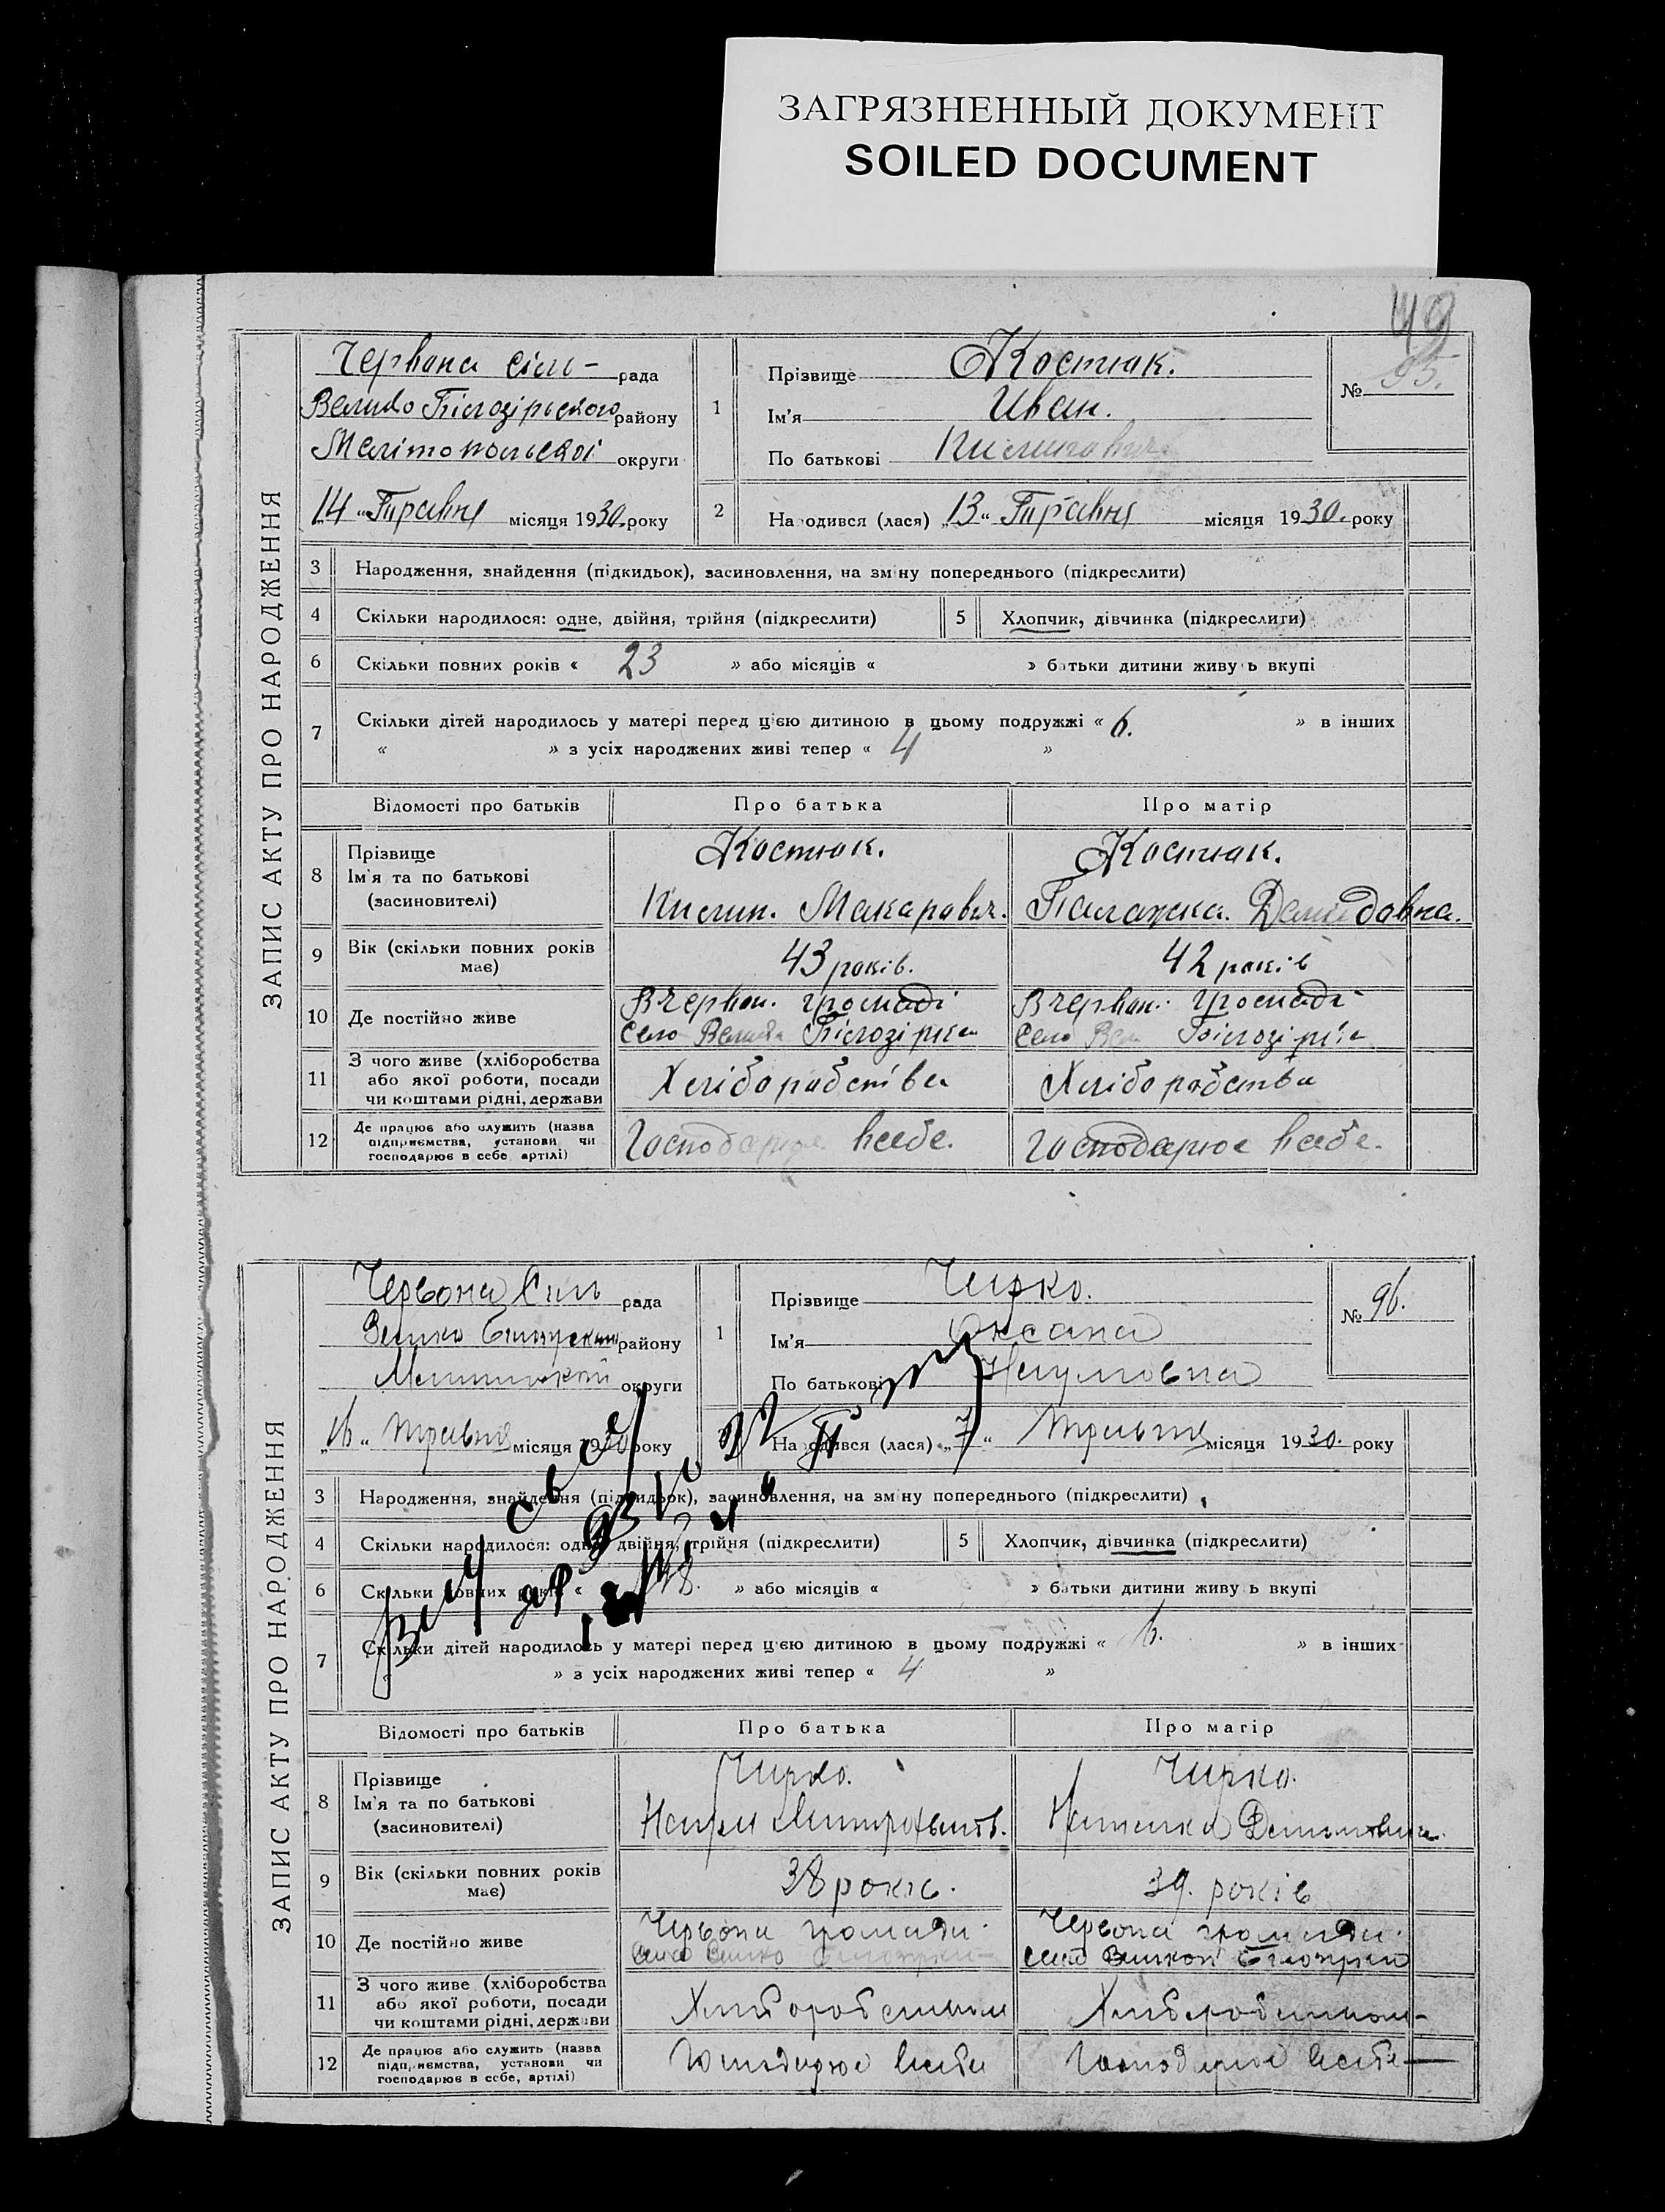 ЗАГРЯЗНЕННЫЙ ДОКУМЕНТ
SOILED DOCUMENT
49
ЗАПИС АКТУ ПРО НАРОДЖЕННЯ
Червона сіль- рада
Велико Білозірського району
Мелітопольскоі округи
„14“ Травня місяця 1930. року
1
Прізвище Костюк.
Ім'я Иван.
По батькові
№ 95.
2
Народився (лася) „13“ Травня місяця 1930. року
3 Народження, знайдення (підкидьок), засиновлення, на зміну попереднього (підкреслити)
4 Скільки народилося: одне, двійня, трійня (підкреслити)
5 Хлопчик, дівчинка (підкреслити)
6 Скільки повних років « 23 » або місяців « » батьки дитини живуть вкупі
7 Скільки дітей народилось у матері перед цією дитиною в цьому подружжі « 6. » в інших
« » з усіх народжених живі тепер « 4 »
Відомості про батьків Про батька Про матір
8 Прізвище
Ім'я та по батькові
(засиновителі)
Костюк.
Макарович.
Костюк.
Палажка. Демидовна.
9 Вік (скільки повних років має)
43 років.
42 років
10 Де постійно живе
В червон. громаді
село Велика Білозірка
В червон. громаді
село Вел Білозірка
11 З чого живе (хліборобства
або якої роботи, посади
чи коштами рідні, держави
Хліборобства
Хліборобства
12 Де працює або служить (назва
підприємства, установи чи
господарює в себе, артілі)
Господарює всебе.
Господарює всебе.
ЗАПИС АКТУ ПРО НАРОДЖЕННЯ
Червона Сіль рада
Велико району
округи
„16“ травня місяця 1930 року
1
Прізвище Чирко.
Ім'я Оксана
По батькові Наумовна
№ 96.
Народився (лася) „7“ травня місяця 1930. року
3 Народження, знайдення (підкидьок), засиновлення, на зміну попереднього (підкреслити)
4 Скільки народилося: одне, двійня, трійня (підкреслити)
5 Хлопчик, дівчинка (підкреслити)
6 Скільки повних років « 18. » або місяців « » батьки дитини живуть вкупі
7 Скільки дітей народилось у матері перед цією дитиною в цьому подружжі « 6. » в інших
« » з усіх народжених живі тепер « 4 »
Відомості про батьків Про батька Про матір
8 Прізвище
Ім'я та по батькові
(засиновителі)
Чирко.
Наум
Чирко.
9 Вік (скільки повних років має)
38 років.
39. років
10 Де постійно живе
Червона громади.
Червона громади.
11 З чого живе (хліборобства
або якої роботи, посади
чи коштами рідні, держави
Хліборобством
Хліборобством-
12 Де працює або служить (назва
підприємства, установи чи
господарює в себе, артілі)
Господарює всебе
Господарює всебе